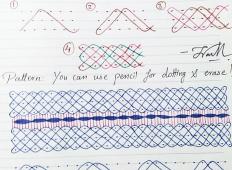 ① ② ③
④
Pattern: You can use pencil for dotting & erase!